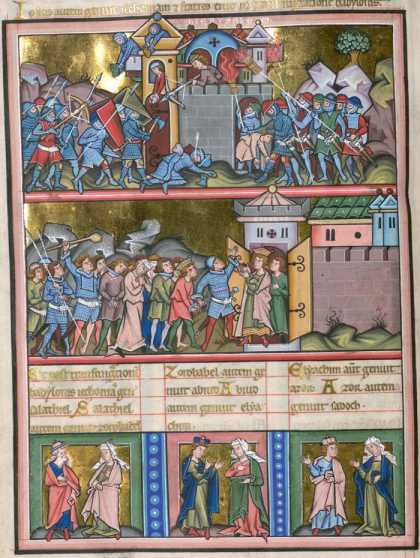 autem genuit iechoniam & fratres eius in migracione babylonis.
Et post transmigrationē
babylonis iechonias gen
salathiel. Salathiel
autem genuit zorobabel
Zorobabel autem ge
nuit abiud. Abiud
autem genuit elya
chim.
Elyachim aūt genuit
azor. Azor autem
genuit sadoch.